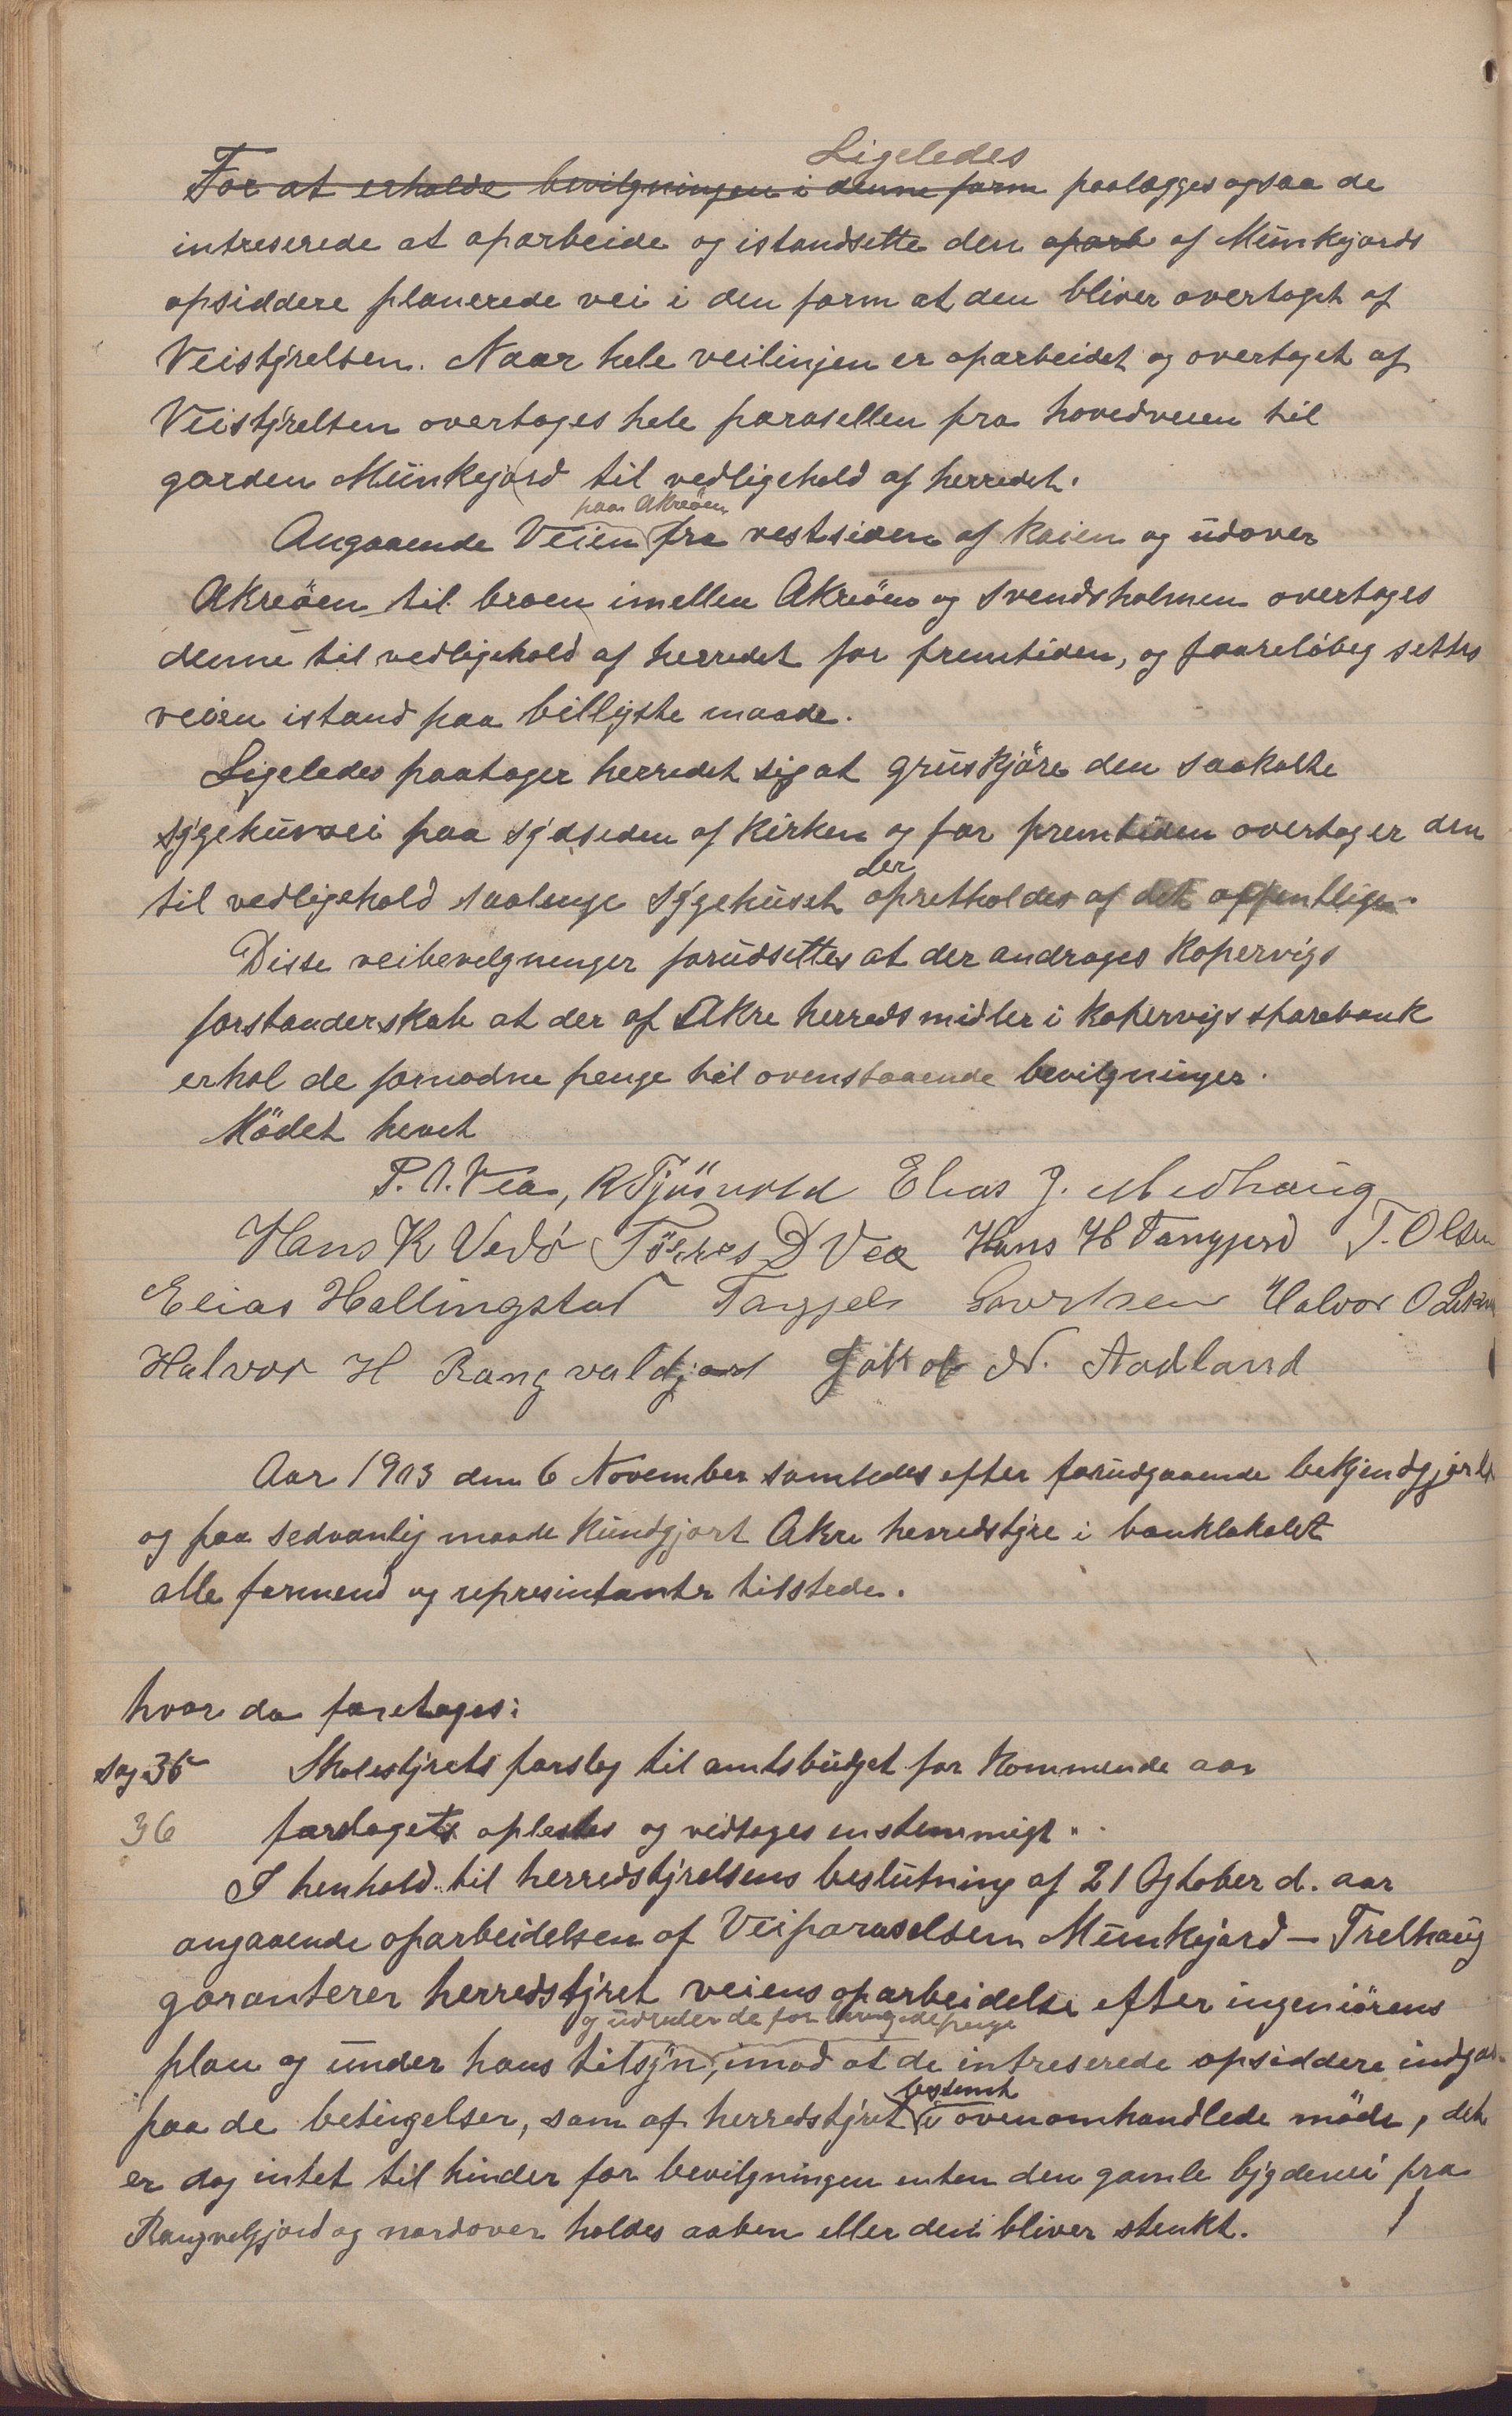 Ligeledes
For at erholde bevilgningen i denne form paalægges ogsaa de
intreserede at oparbeide og istandsette den oparb af Munkejords
opsiddere planerede vei i den form at den bliver overtaget af
Veistyrelsen. Naar hele veilinjen er oparbeidet og overtaget af
Veistyrelsen overtages hele parasellen fra hovedveien til
garden Munkejord til vedligehold af herredet.
paa Akreöen
Angaaende Veien fra vestsiden af kaien og udover
Akreöen til broen imellen Akreöen og Svendsholmen overtages
denne til vedligehold af herredet for fremtiden, og faareløbeg settes
veien istand paa billigste maade.
Ligeledes paatager herredet sig at gruskjöre den saakalte
sygehusvei paa sydseden af kirken og for fremtiden overtager den
der
til vedligehold saalenge sygehuset opretholdes af det offentlige.
Disse veibevelgnenger forudsettes at der andrages Kopervigs
forstanderskab at der af Akre herreds midler i Kopervigs sparebank
erhol de fornødne penge til ovenstaaende bevilgninger.
Mödet hevet
P. A. Vea, R Tjösvold Elias J. Medhaug
Hans K Vedø Töeres D Vea Hans H Tangjerd T. Olsen
Elias Hallingstad Tarjjels Lavrtsen Halvor O
Halvor H Rangvaldjord Jakob N. Aadland
Aar 1903 den 6 November samledes efter forudgaaende bekjendgjørelse
og paa sedvanlig maade kundgjort Akre herredstyre i banklokalet
alle formend og represintanter tilstede.
hvor da foretages:
sag 35 Skolestyrets forslag til amtsbudget for kommende aar
36 forslagets oplestes og vedtages enstemmigt.
I henhold til herredstyrelsens beslutning af 21 Ogtober d. aar
angaaende oparbeidelsen af Veiparaselsen Munkejord – Trelhaug
garanterer herredstyret veiens oparbeidelse efter ingeniörens
og udreder de forlangede penge
plan og under hans tilsyn, imod at de intreserede opsiddere indgaar
bestemt
paa de betingelser, som af herredstyret i ovenomhandlede möde, det
er dog intet til hinder for bevilgningen enten den gamle bygdevei fra
Rangvelsjord og nordover holdes aaben eller den bliver stenkt.